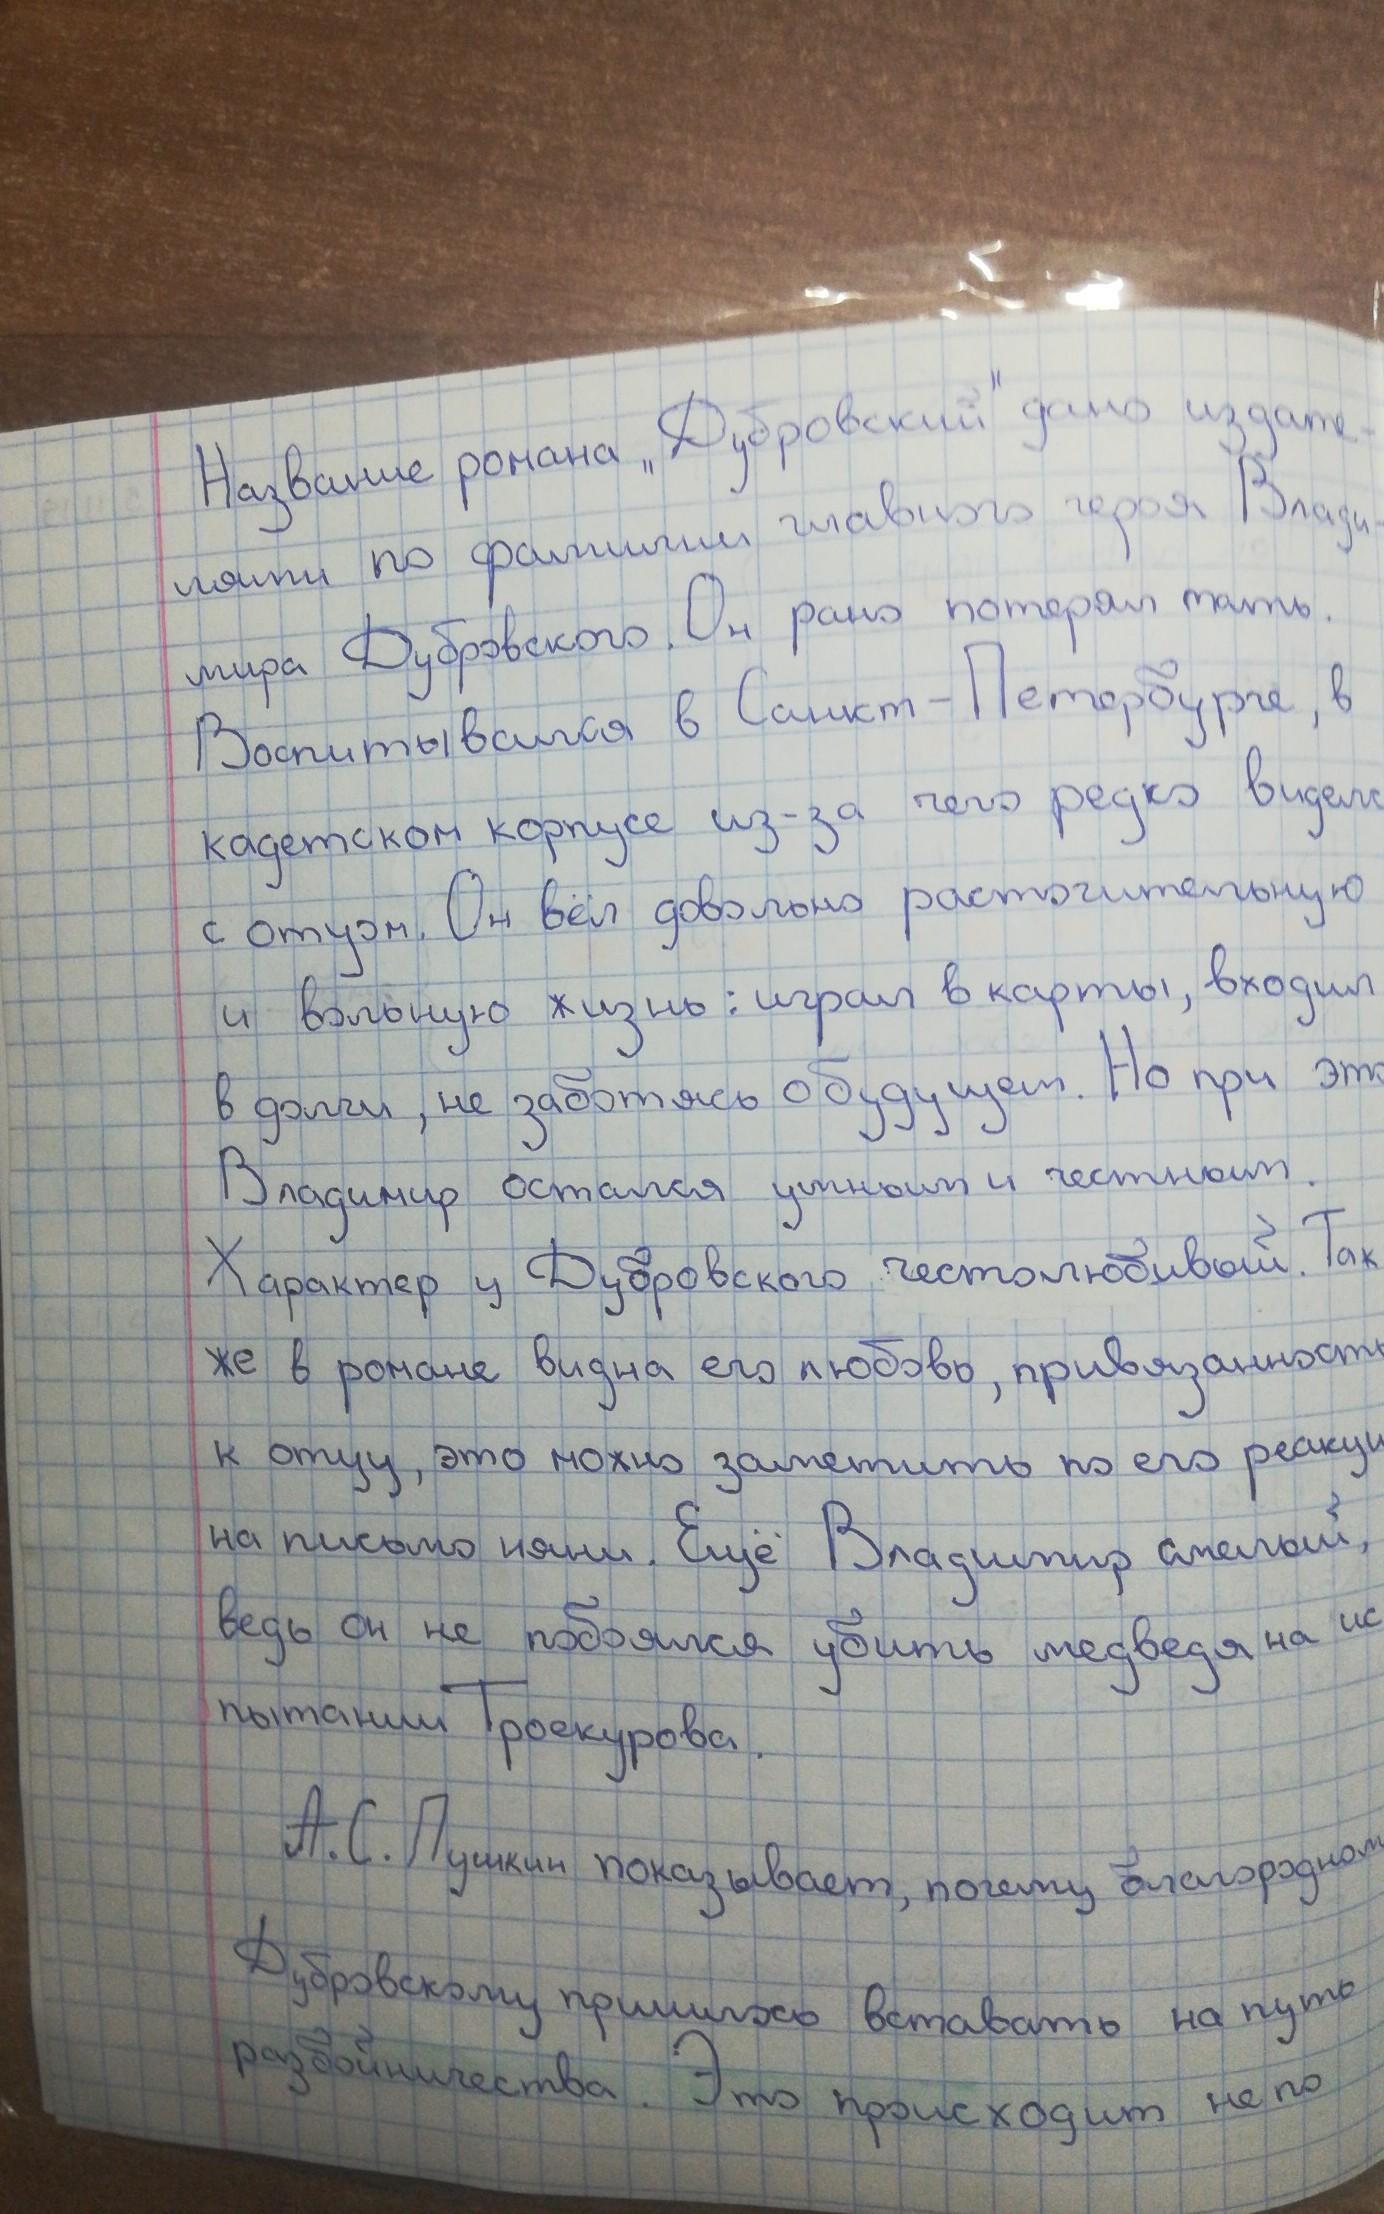 Название романа „Дубровский" дано издате-
лями по фамилии главного героя Влади-
мира Дубровского. Он рано потерял мать.
Воспитывался в Санкт-Петербурге, в
кадетском корпусе из-за чего редко виделс
с отцом. Он вёл довольно расточительную
и вольную жизнь: играл в карты, входил
в долги, не заботясь о будущем. Но при это
Владимир остался умным и честным.
Характер у Дубровского честолюбивый. Так
же в романе видна его любовь, привязанность
к отцу, это можно заметить по его реакци
на письмо няни. Ещё Владимир смелый,
ведь он не побоялся убить медведя на ис
пытании Троекурова.
А.С. Пушкин показывает, почему благородном
Дубровскому пришлось вставать на путь
разбойничества. Это происходит не по